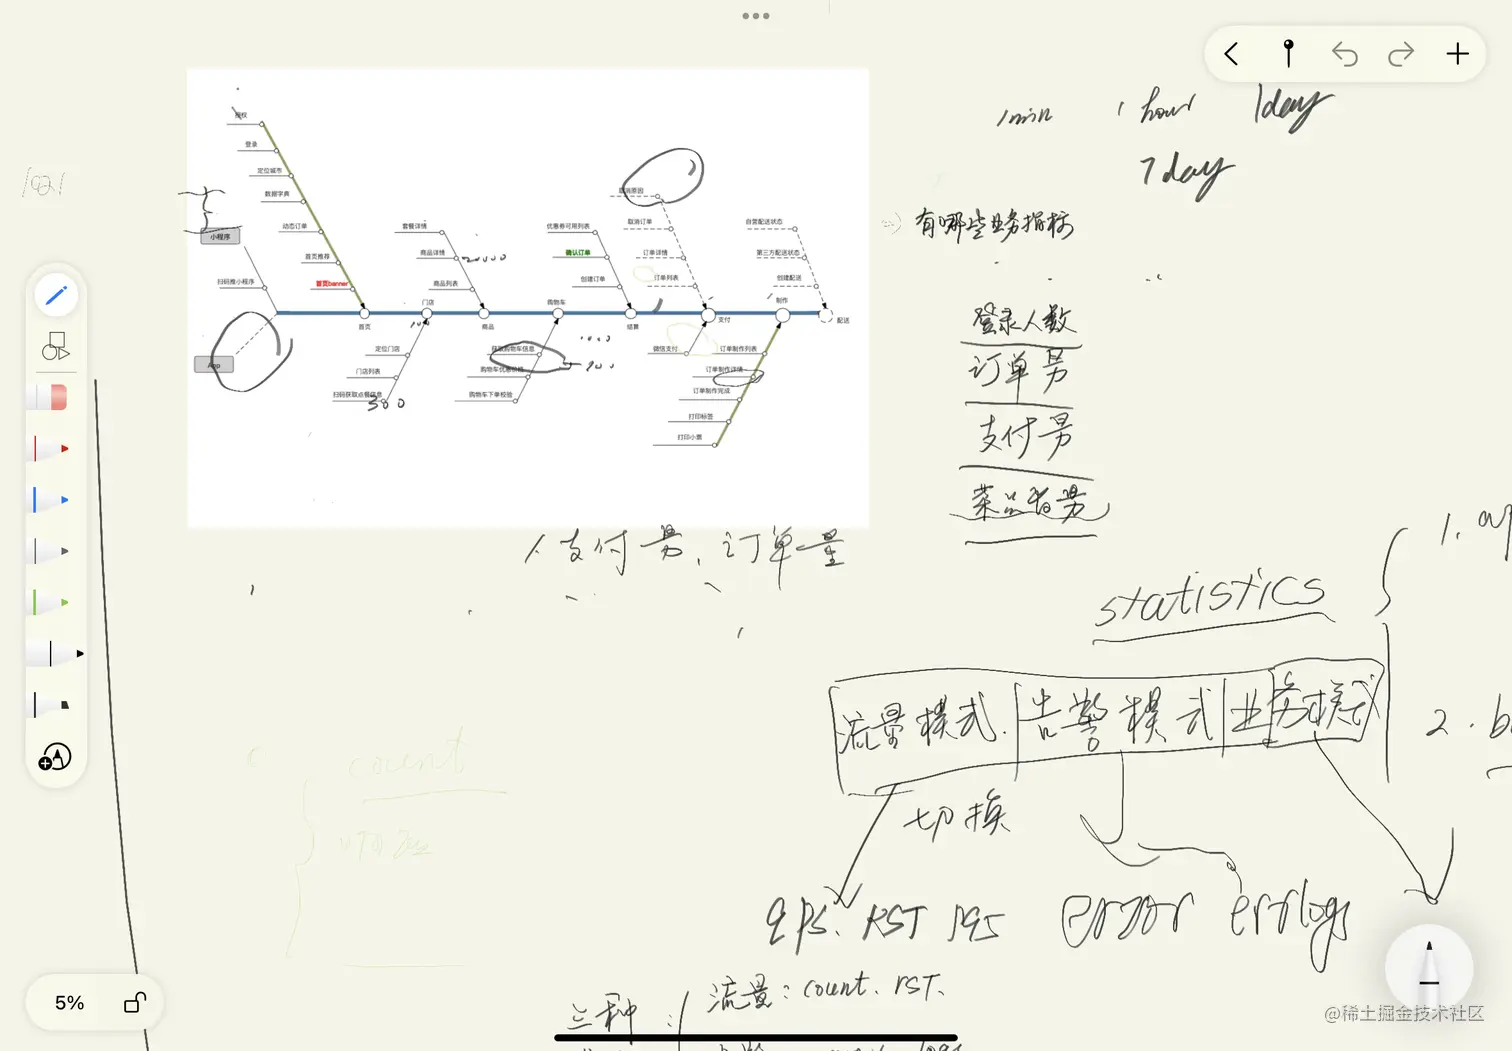 1min 1 hour 1day
7day
有哪些业务指标
授权
登录
定位城市
数据字典
动态订单
首页推荐
首页banner
小程序
扫码推小程序
App
首页
套餐详情
商品详情
20000
商品列表
门店
商品
定位门店
门店列表
扫码获取点餐信息
300
优惠券可用列表
确认订单
创建订单
购物车
结算
获取购物车信息
购物车优惠价格
购物车下单校验
取消原因
取消订单
订单详情
订单列表
支付
微信支付
自营配送状态
第三方配送状态
创建配送
制作
配送
订单制作列表
订单制作详情
订单制作完成
打印标签
打印小票
登录人数
订单量
支付量
支付量、订单量
statistics
1.
2.
流量模式 告警模式 业务模式
切换
qps. RST
error errlog
count
三种:
流量: count. RST.
5%
@稀土掘金技术社区